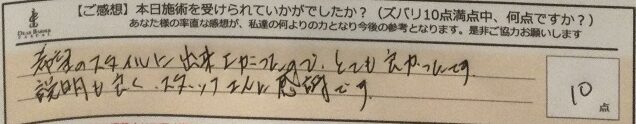 【ご感想】本日施術を受けられていかがでしたか？（ズバリ10点満点中、何点ですか？）
あなた様の率直な感想が、私達の何よりの力となり今後の参考となります。是非ご協力お願いします
DEAR BARBER
希望のスタイルに出来上がったので、とても良かったです。
説明も良く、スタッフさんに感謝です。
10
点